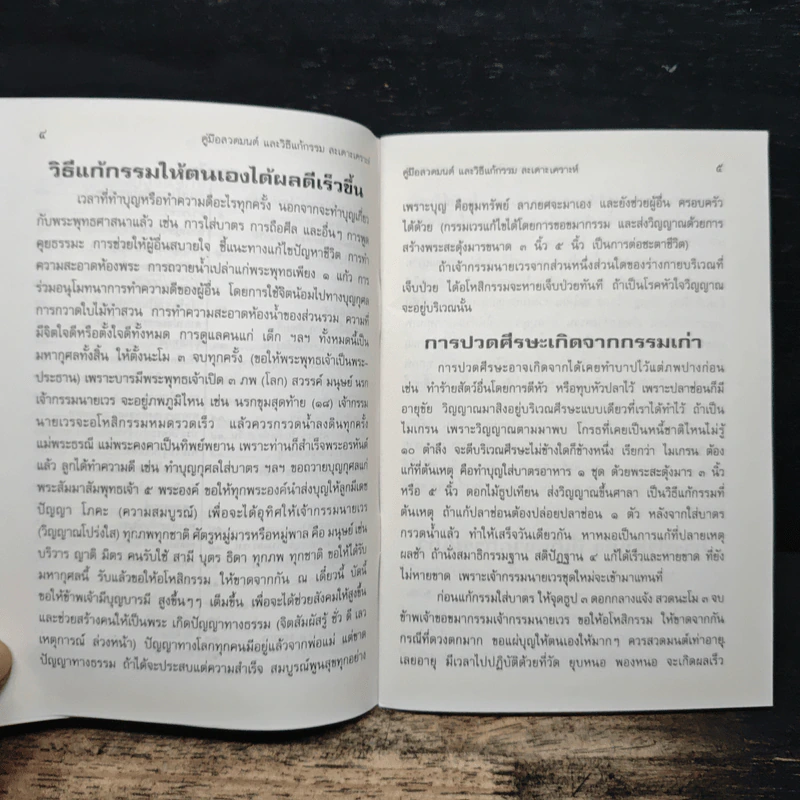 ๔
คู่มือสวดมนต์ และวิธีแก้กรรม สะเดาะเคราะห์
วิธีแก้กรรมให้ตนเองได้ผลดีเร็วขึ้น
เวลาที่ทำบุญหรือทำความดีอะไรทุกครั้ง นอกจากจะทำบุญเกี่ยว
กับพระพุทธศาสนาแล้ว เช่น การใส่บาตร การถือศีล และอื่นๆ การพูด
คุยธรรมะ การช่วยให้ผู้อื่นสบายใจ ชี้แนะทางแก้ไขปัญหาชีวิต การทำ
ความสะอาดห้องพระ การถวายน้ำเปล่าแก่พระพุทธเพียง ๑ แก้ว การ
ร่วมอนุโมทนาการทำความดีของผู้อื่น โดยการใช้จิตน้อมไปทางบุญกุศล
การกวาดใบไม้ทำสวน การทำความสะอาดห้องน้ำของส่วนรวม ความที่
มีจิตใจดีหรือตั้งใจดีทั้งหมด การดูแลคนแก่ เด็ก ฯลฯ ทั้งหมดนี้เป็น
มหากุศลทั้งสิ้น ให้ตั้งนะโม ๓ จบทุกครั้ง (ขอให้พระพุทธเจ้าเป็นพระ-
ประธาน) เพราะบารมีพระพุทธเจ้าเปิด ๓ ภพ (โลก) สวรรค์ มนุษย์ นรก
เจ้ากรรมนายเวร จะอยู่ภพภูมิไหน เช่น นรกขุมสุดท้าย (๑๘) เจ้ากรรม
นายเวรจะอโหสิกรรมหมดรวดเร็ว แล้วควรกรวดน้ำลงดินทุกครั้ง
แม่พระธรณี แม่พระคงคาเป็นทิพย์พยาน เพราะท่านก็สำเร็จพระอรหันต์
แล้ว ลูกได้ทำความดี เช่น ทำบุญกุศลใส่บาตร ฯลฯ ขอถวายบุญกุศลแก่
พระสัมมาสัมพุทธเจ้า ๕ พระองค์ ขอให้ทุกพระองค์นำส่งบุญให้ลูกมีเดช
ปัญญา โภคะ (ความสมบูรณ์) เพื่อจะได้อุทิศให้เจ้ากรรมนายเวร
(วิญญาณโปร่งใส) ทุกภพทุกชาติ ศัตรูหมู่มารหรือหมู่พาล คือ มนุษย์ เช่น
บริวาร ญาติ มิตร คนรับใช้ สามี บุตร ธิดา ทุกภพ ทุกชาติ ขอให้ได้รับ
มหากุศลนี้ รับแล้วขอให้อโหสิกรรม ให้ขาดจากกัน ณ เดี๋ยวนี้ บัดนี้
ขอให้ข้าพเจ้ามีบุญบารมี สูงขึ้นๆๆ เต็มขึ้น เพื่อจะได้ช่วยสังคมให้สูงขึ้น
และช่วยสร้างคนให้เป็นพระ เกิดปัญญาทางธรรม (จิตสัมผัสรู้ ชั่ว ดี เลว
เหตุการณ์ ล่วงหน้า) ปัญญาทางโลกทุกคนมีอยู่แล้วจากพ่อแม่ แต่ขาด
ปัญญาทางธรรม ถ้าได้จะประสบแต่ความสำเร็จ สมบูรณ์พูนสุขทุกอย่าง
คู่มือสวดมนต์ และวิธีแก้กรรม สะเดาะเคราะห์
๕
เพราะบุญ คือขุมทรัพย์ ลาภยศจะมาเอง และยังช่วยผู้อื่น ครอบครัว
ได้ด้วย (กรรมเวรแก้ไขได้โดยการขอขมากรรม และส่งวิญญาณด้วยการ
สร้างพระสะดุ้งมารขนาด ๓ นิ้ว ๕ นิ้ว เป็นการต่อชะตาชีวิต)
ถ้าเจ้ากรรมนายเวรจากส่วนหนึ่งส่วนใดของร่างกายบริเวณที่
เจ็บป่วย ได้อโหสิกรรมจะหายเจ็บป่วยทันที ถ้าเป็นโรคหัวใจวิญญาณ
จะอยู่บริเวณนั้น
การปวดศีรษะเกิดจากกรรมเก่า
การปวดศีรษะอาจเกิดจากได้เคยทำบาปไว้แต่ภพปางก่อน
เช่น ทำร้ายสัตว์อื่นโดยการตีหัว หรือทุบหัวปลาไว้ เพราะปลาช่อนก็มี
อายุขัย วิญญาณมาสิงอยู่บริเวณศีรษะแบบเดียวที่เราได้ทำไว้ ถ้าเป็น
ไมเกรน เพราะวิญญาณตามมาพบ โกรธที่เคยเป็นหนี้ชาติไหนไม่รู้
๑๐ ตำลึง จะตีบริเวณศีรษะไม่ข้างใดก็ข้างหนึ่ง เรียกว่า ไมเกรน ต้อง
แก้ที่ต้นเหตุ คือทำบุญใส่บาตรอาหาร ๑ ชุด ด้วยพระสะดุ้งมาร ๓ นิ้ว
หรือ ๕ นิ้ว ดอกไม้ธูปเทียน ส่งวิญญาณขึ้นศาลา เป็นวิธีแก้กรรมที่
ต้นเหตุ ถ้าแก้ปลาช่อนต้องปล่อยปลาช่อน ๑ ตัว หลังจากใส่บาตร
กรวดน้ำแล้ว ทำให้เสร็จวันเดียวกัน หาหมอเป็นการแก้ที่ปลายเหตุ
ผลช้า ถ้านั่งสมาธิกรรมฐาน สติปัฏฐาน ๔ แก้ได้เร็วและหายขาด ที่ยัง
ไม่หายขาด เพราะเจ้ากรรมนายเวรชุดใหม่จะเข้ามาแทนที่
ก่อนแก้กรรมใส่บาตร ให้จุดธูป ๓ ดอกกลางแจ้ง สวดนะโม ๓ จบ
ข้าพเจ้าขอขมากรรมเจ้ากรรมนายเวร ขอให้อโหสิกรรม ให้ขาดจากกัน
กรณีที่ดวงตกมาก ขอแผ่บุญให้ตนเองให้มากๆ ควรสวดมนต์เท่าอายุ
เลยอายุ มีเวลาไปปฏิบัติด้วยที่วัด ยุบหนอ พองหนอ จะเกิดผลเร็ว